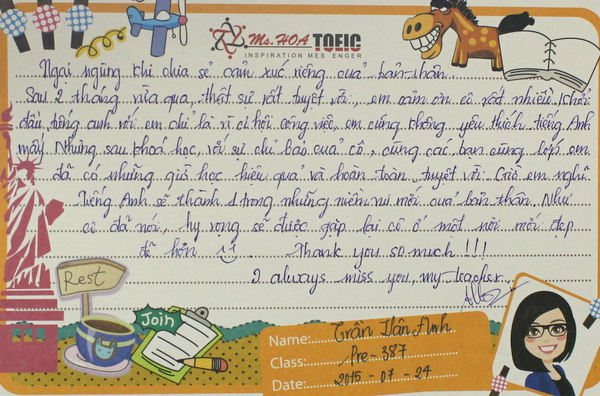 Ms.HOA TOEIC
INSPIRATION MES ENGER
Ngại ngùng khi chia sẻ cảm xúc riêng của bản thân...
Sau 2 tháng vừa qua, thật sự rất tuyệt vời, em cảm ơn cô rất nhiều. Khởi
đầu, tiếng anh với em chỉ là vì cơ hội công việc, em cũng không yêu thích tiếng Anh
mấy. Nhưng sau khoá học, với sự chỉ bảo của cô, cùng các bạn cùng lớp em
đã có những giờ học hiệu quả và hoàn toàn tuyệt vời. Giờ em nghĩ
Tiếng Anh sẽ thành 1 trong những niềm vui mới của bản thân. Như
cô đã nói, hy vọng sẽ được gặp lại cô ở một nơi mới đẹp
đẽ hơn :). Thank you so much !!!
I always miss you, my teacher.
Rest
Join
Name: Trần Vân Anh
Class: Pre - 387
Date: 2015 - 07 - 24